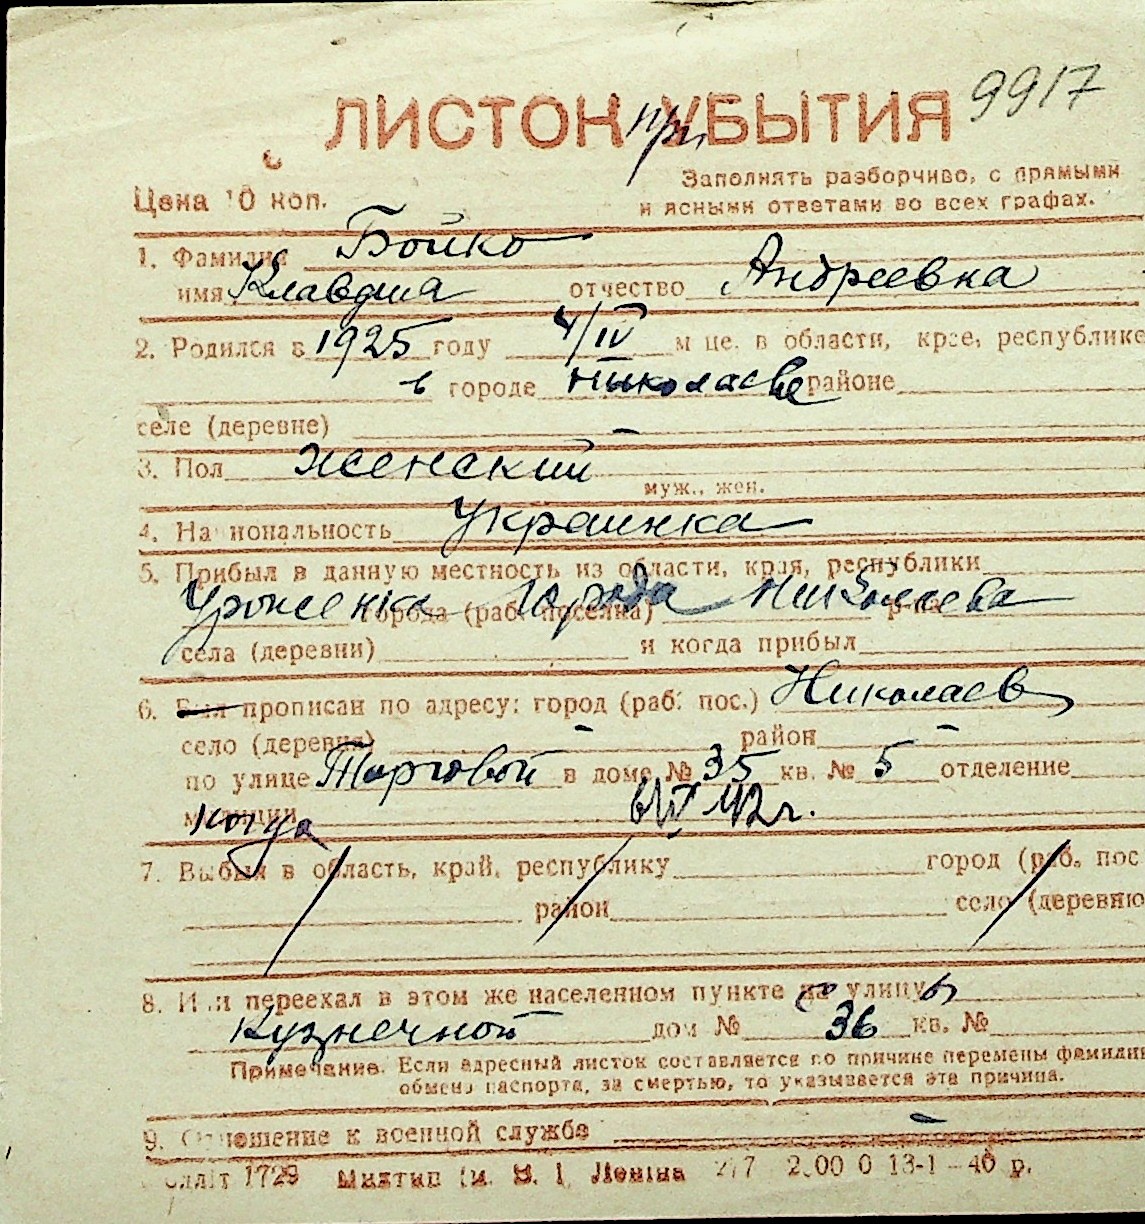 9917
ЛИСТОК при УБЫТИЯ
Цена 10 коп.
Заполнять разборчиво, с прямыми
и ясными ответами во всех графах.
1. Фамилия Бойко
имя Клавдия отчество Андреевна
2. Родился в 1925 году 4/IV м це. в области, крае, республике
в городе Николаеве районе
селе (деревне) –
3. Пол женский
муж., жен.
4. Национальность Украинка
5. Прибыл в данную местность из области, края, республики
Уроженка города Николаева
города (раб. поселка) р-на
села (деревни) и когда прибыл
6. Был прописан по адресу: город (раб. пос.) Николаев
село (деревня) – район –
по улице Торговой в доме № 35 кв. № 5 отделение
милиции когда 6/IX 42 г.
7. Выбыл в область, край, республику город (раб. пос
район село (деревню
8. Или переехал в этом же населенном пункте с улицы
Кузнечной дом № 36 кв. №
Примечание. Если адресный листок составляется по причине перемены фамилии
обмена паспорта, за смертью, то указывается эта причина.
9. Отношение к военной службе –
1729 Миктип ім. В. І. Леніна 13-1–40 р.